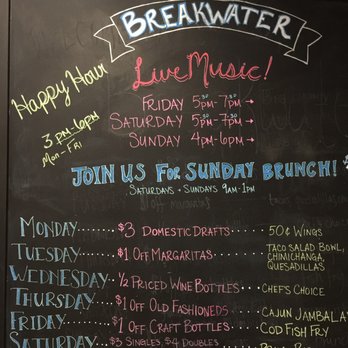 BREAKWATER
Live Music!
Happy Hour
3 PM-6PM
Mon-Fri
FRIDAY 5:30PM-7:30PM →
SATURDAY 5:30PM-7:30PM →
SUNDAY 4PM-6PM →
JOIN US FOR SUNDAY BRUNCH!
SATURDAYS + SUNDAYS 9AM-1PM
MONDAY......$3 DOMESTIC DRAFTS......50¢ WINGS
TUESDAY.....$1 OFF MARGARITAS......TACO SALAD BOWL,
CHIMICHANGA,
QUESADILLAS
WEDNESDAY...½ PRICED WINE BOTTLES...CHEF'S CHOICE
THURSDAY....$1 OFF OLD FASHIONEDS......CAJUN JAMBALA
FRIDAY......$1 OFF CRAFT BOTTLES...COD FISH FRY
SATURDAY....$3 SINGLES, $4 DOUBLES